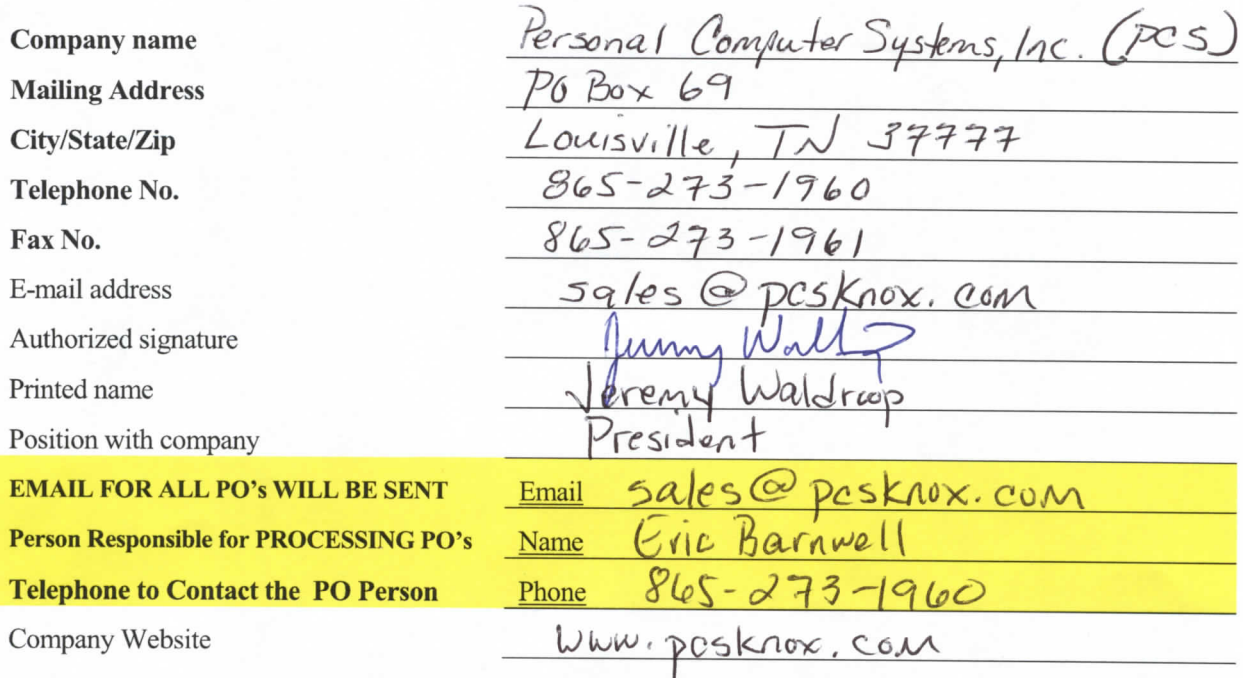 Company name Personal Computer Systems, Inc. (PCS)
Mailing Address PO Box 69
City/State/Zip Louisville, TN 37777
Telephone No. 865-273-1960
Fax No. 865-273-1961
E-mail address sales@pcsknox.com
Authorized signature
Printed name Jeremy Waldroop
Position with company President
EMAIL FOR ALL PO's WILL BE SENT Email sales@pcsknox.com
Person Responsible for PROCESSING PO's Name Eric Barnwell
Telephone to Contact the PO Person Phone 865-273-1960
Company Website www.pcsknox.com